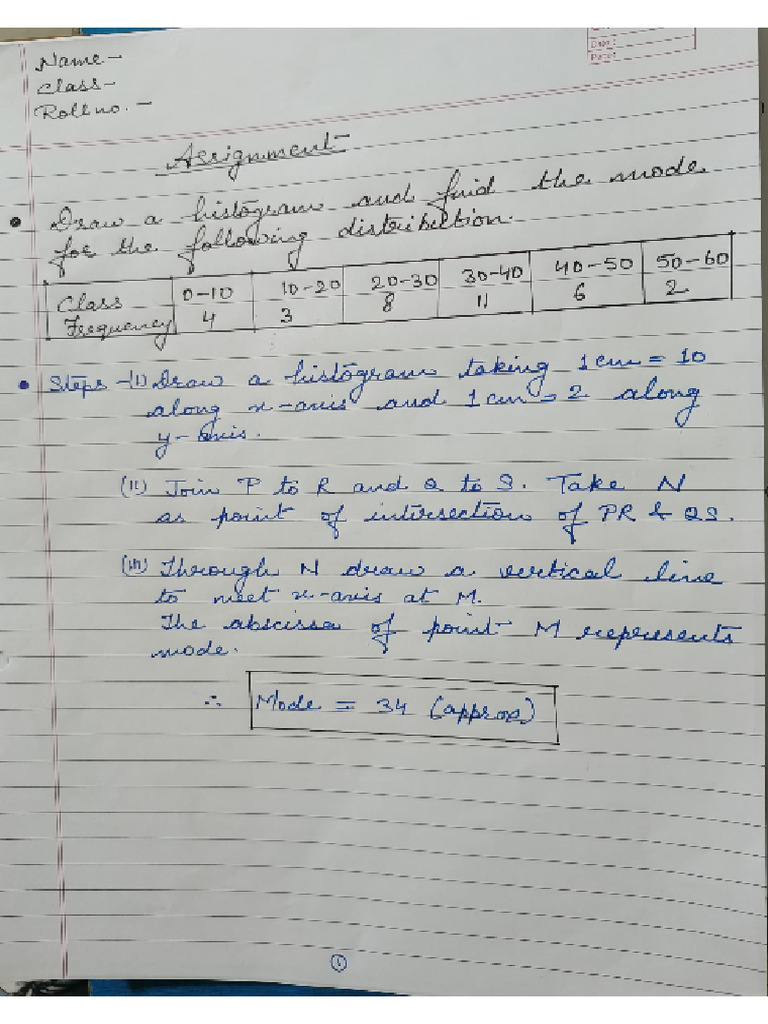 Date:
Page:
Name-
Class-
Roll no.-
Assignment
• Draw a histogram and find the mode
for the following distribution.
Class 0-10 10-20 20-30 30-40 40-50 50-60
Frequency 4 3 8 11 6 2
• Steps -(I) Draw a histogram taking 1cm = 10
along x-axis and 1cm = 2 along
y-axis.
(II) Join P to R and Q to S. Take N
as point of intersection of PR & QS.
(III) Through N draw a vertical line
to meet x-axis at M.
The abscissa of point M represents
mode.
∴ Mode = 34 (approx)
1